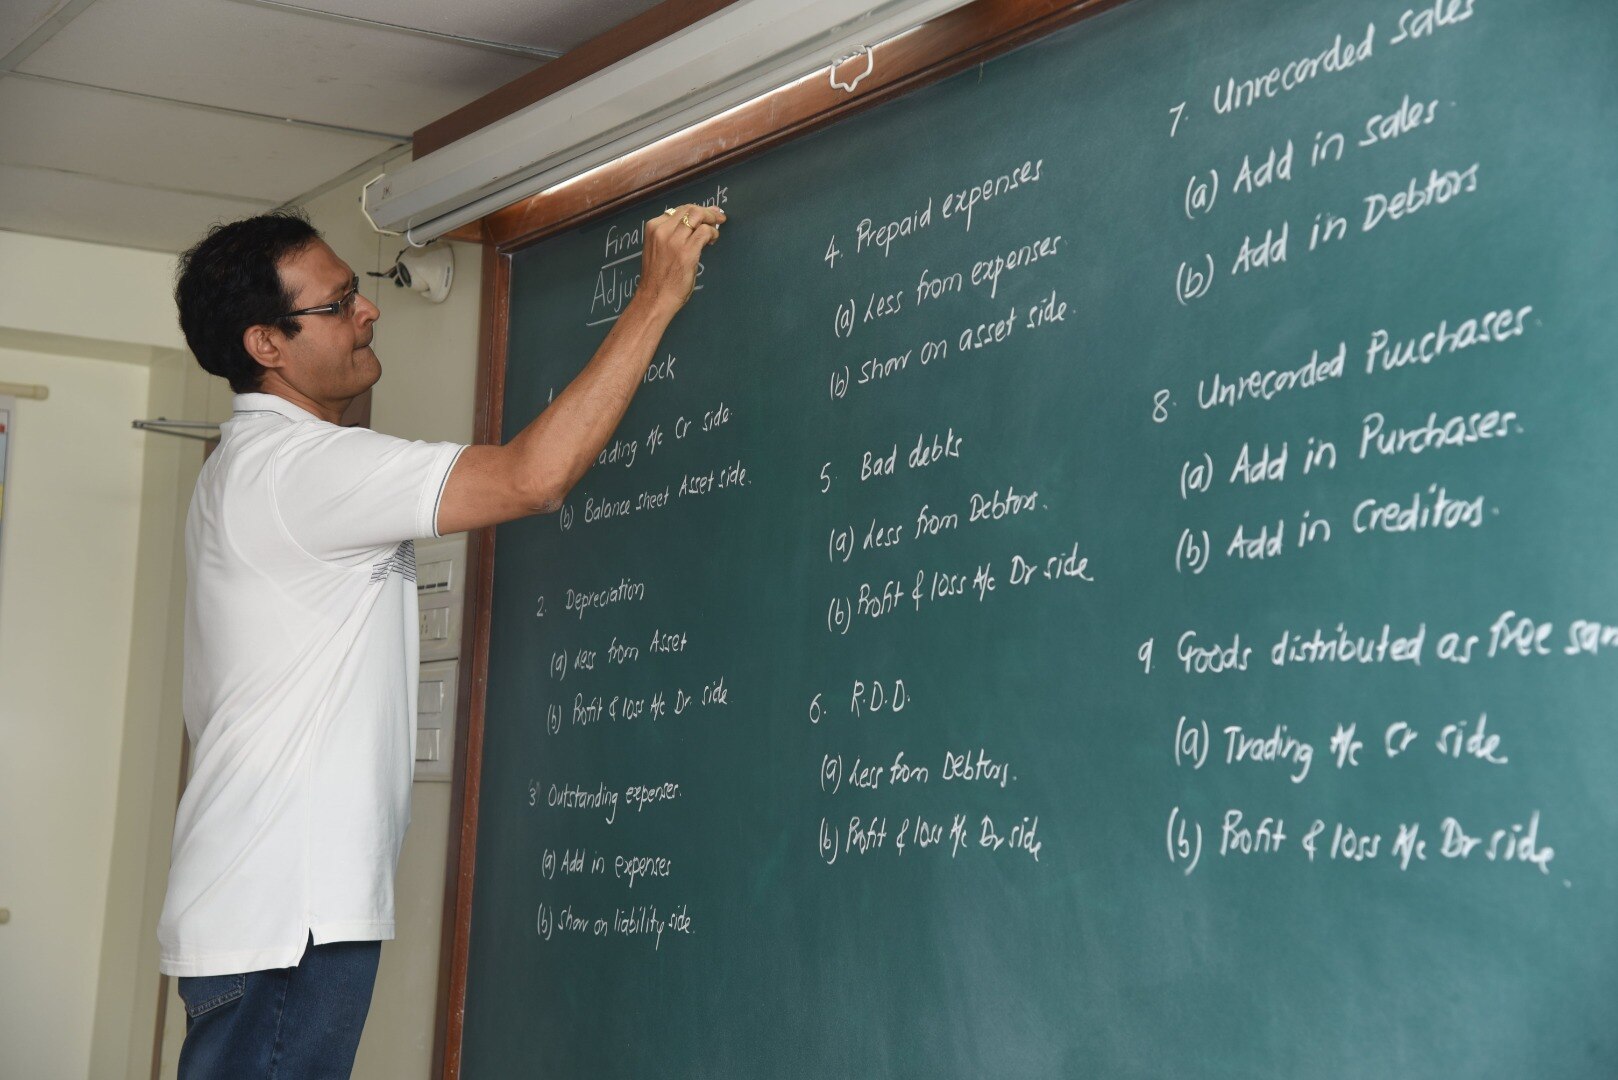 Final
Adjus
1. ock
ading A/c Cr side.
(b) Balance sheet Asset side.
2. Depreciation
(a) Less from Asset
(b) Profit & loss A/c Dr. side
3) Outstanding expenses.
(a) Add in expenses
(b) Show on liability side.
4. Prepaid expenses
(a) Less from expenses.
(b) Show on asset side.
5. Bad debts
(a) Less from Debtors.
(b) Profit & loss A/c Dr side
6. R.D.D.
(a) Less from Debtors.
(b) Profit & loss A/c Dr side
7. Unrecorded Sales
(a) Add in sales.
(b) Add in Debtors
8. Unrecorded Purchases.
(a) Add in Purchases.
(b) Add in Creditors.
9. Goods distributed as free sam
(a) Trading A/c Cr side
(b) Profit & loss A/c Dr side.